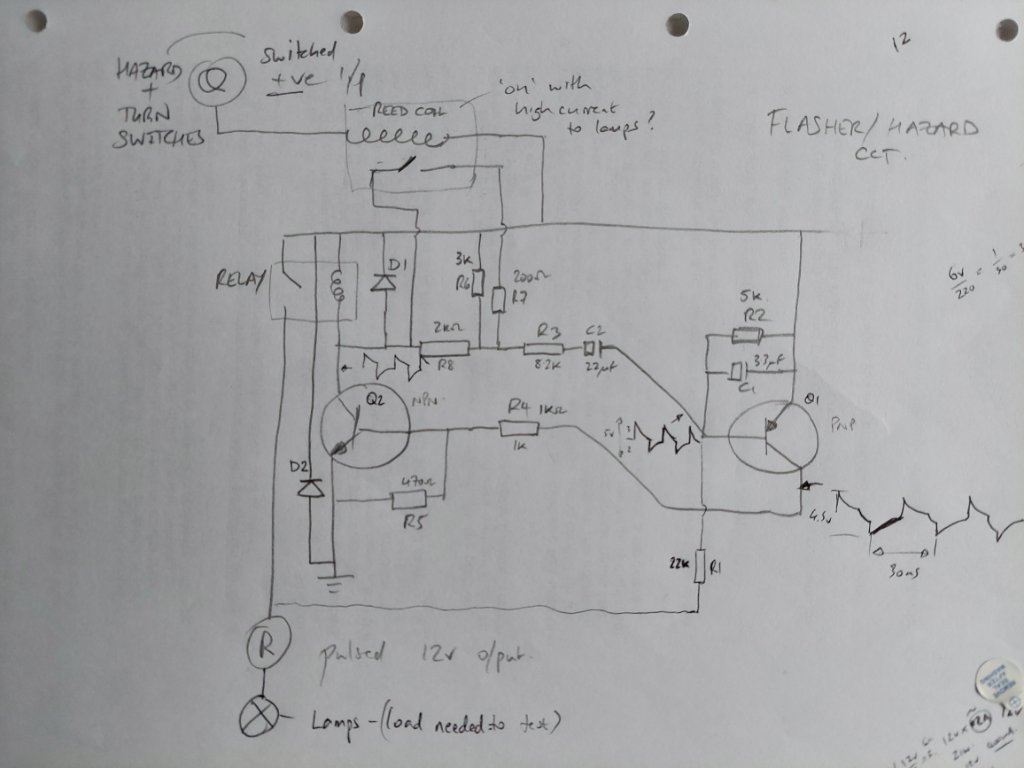 12
HAZARD
+
TURN
SWITCHES
Q
Switched
+ve i/p
'on' with
high current
to lamps?
REED COIL
FLASHER/HAZARD
CCT.
6v
220
=
1
30
=
RELAY
D1
3K
R6
200Ω
R7
5K
R2
2KΩ
R8
R3
8.2K
C2
22µF
33µF
C1
Q2
NPN
R4
1KΩ
1K
Q1
PNP
5v
D2
470Ω
R5
4.5v
30ms
22K
R1
R
pulsed 12v o/put.
Lamps - (load needed to test)